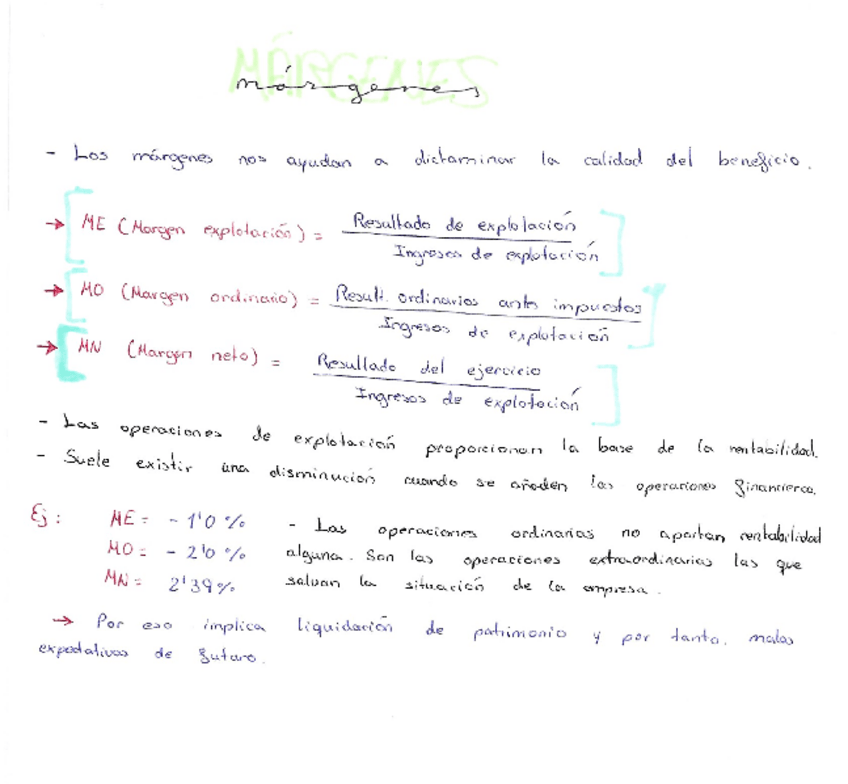 MÁRGENES
márgenes
- Los márgenes nos ayudan a dictaminar la calidad del beneficio.
→ ME (Margen explotación) = Resultado de explotación
Ingresos de explotación
→ MO (Margen ordinario) = Result. ordinarios antes impuestos
Ingresos de explotación
→ MN (Margen neto) = Resultado del ejercicio
Ingresos de explotación
- Las operaciones de explotación proporcionan la base de la rentabilidad.
- Suele existir una disminución cuando se añaden las operaciones financieras.
Ej: ME = - 1'0 % - Las operaciones ordinarias no aportan rentabilidad
MO = - 2'0 % alguna. Son las operaciones extraordinarias las que
MN = 2'39 % salvan la situación de la empresa.
→ Por eso implica liquidación de patrimonio y por tanto, malas
expectativas de futuro.